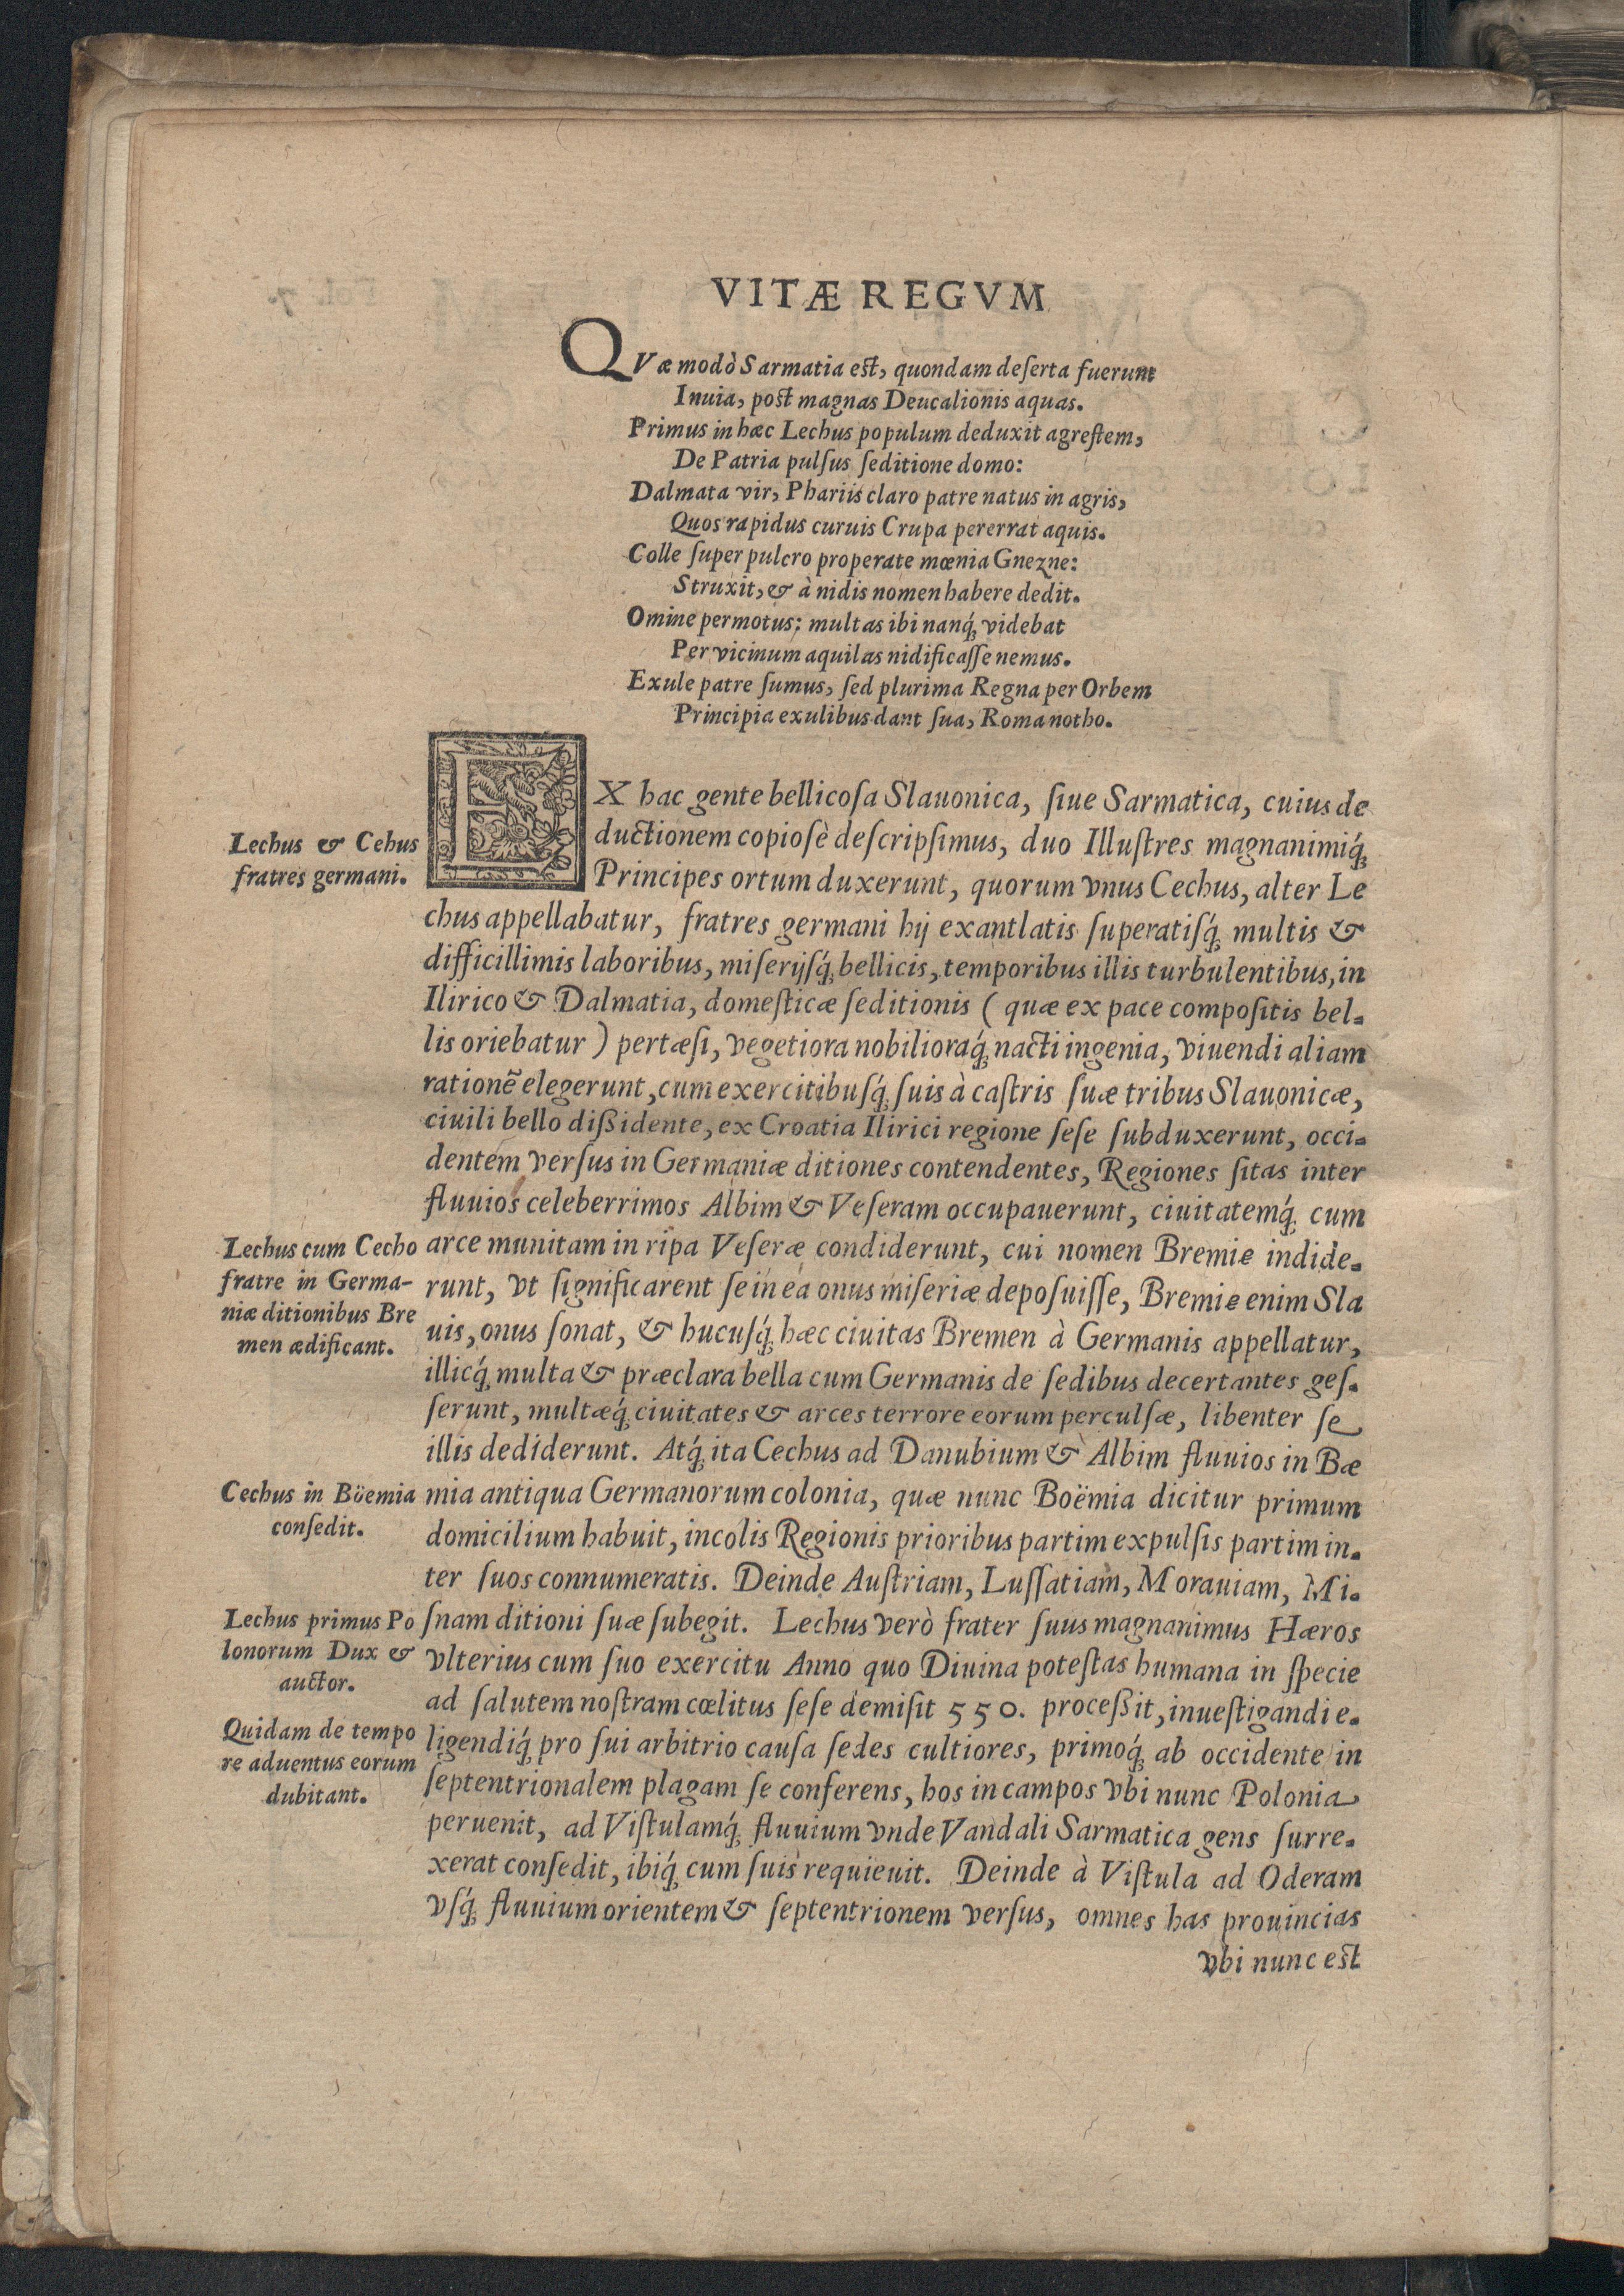 VITÆ REGVM
QVæ modò Sarmatia est, quondam deſerta fuerunt
Inuia, post magnas Deucalionis aquas.
Primus in hæc Lechus populum deduxit agreſtem,
De Patria pulſus ſeditione domo:
Dalmata vir, Phariis claro patre natus in agris,
Quos rapidus curuis Crupa pererrat aquis.
Colle ſuper pulcro properate mœnia Gnezne:
Struxit, & à nidis nomen habere dedit.
Omine permotus: multas ibi nanq́; videbat
Per vicinum aquilas nidificaſſe nemus.
Exule patre ſumus, ſed plurima Regna per Orbem
Principia exulibus dant ſua, Roma notho.
EX hac gente bellicoſa Slauonica, ſiue Sarmatica, cuius de
ductionem copioſè deſcripſimus, duo Illuſtres magnanimiq́;
Principes ortum duxerunt, quorum vnus Cechus, alter Le
chus appellabatur, fratres germani hij exantlatis ſuperatiſq́; multis &
difficillimis laboribus, miſerijſq́; bellicis, temporibus illis turbulentibus, in
Ilirico & Dalmatia, domeſticæ ſeditionis ( quæ ex pace compoſitis bel-
lis oriebatur ) pertæſi, vegetiora nobilioraq́; nacti ingenia, viuendi aliam
rationẽ elegerunt, cum exercitibuſq́; ſuis à caſtris ſuæ tribus Slauonicæ,
ciuili bello dißidente, ex Croatia Ilirici regione ſeſe ſubduxerunt, occi-
dentem verſus in Germaniæ ditiones contendentes, Regiones ſitas inter
fluuios celeberrimos Albim & Veſeram occupauerunt, ciuitatemq́; cum
arce munitam in ripa Veſeræ condiderunt, cui nomen Bremie indide-
runt, vt ſignificarent ſe in ea onus miſeriæ depoſuiſſe, Bremie enim Sla
uis, onus ſonat, & hucuſq́; hæc ciuitas Bremen à Germanis appellatur,
illicq́; multa & præclara bella cum Germanis de ſedibus decertantes geſ-
ſerunt, multæq́; ciuitates & arces terrore eorum perculſæ, libenter ſe
illis dediderunt. Atq́; ita Cechus ad Danubium & Albim fluuios in Bæ
mia antiqua Germanorum colonia, quæ nunc Boëmia dicitur primum
domicilium habuit, incolis Regionis prioribus partim expulſis partim in-
ter ſuos connumeratis. Deinde Auſtriam, Luſſatiam, Morauiam, Mi-
ſnam ditioni ſuæ ſubegit. Lechus verò frater ſuus magnanimus Hæros
vlterius cum ſuo exercitu Anno quo Diuina poteſtas humana in ſpecie
ad ſalutem noſtram cœlitus ſeſe demiſit 550. proceßit, inueſtigandi e-
ligendiq́; pro ſui arbitrio cauſa ſedes cultiores, primoq́; ab occidente in
ſeptentrionalem plagam ſe conferens, hos in campos vbi nunc Polonia
peruenit, ad Viſtulamq́; fluuium vnde Vandali Sarmatica gens ſurre-
xerat conſedit, ibiq́; cum ſuis requieuit. Deinde à Viſtula ad Oderam
vſq́; fluuium orientem & ſeptentrionem verſus, omnes has prouincias
vbi nunc est
Lechus & Cehus
fratres germani.
Lechus cum Cecho
fratre in Germa-
niæ ditionibus Bre
men ædificant.
Cechus in Böemia
conſedit.
Lechus primus Po
lonorum Dux &
auctor.
Quidam de tempo
re aduentus eorum
dubitant.